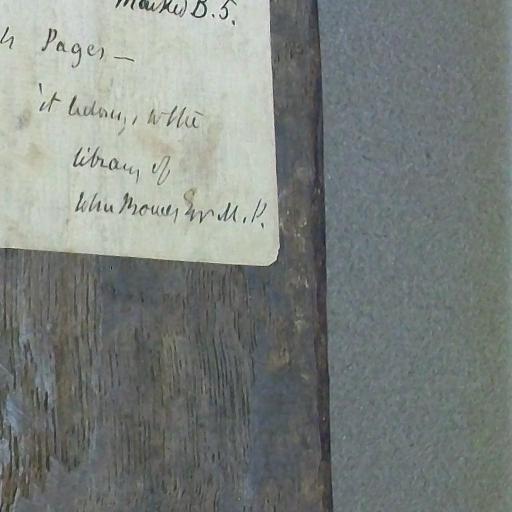 Marked B. 5.
Pages —
it belongs to the
library of
John Esqr M. P.